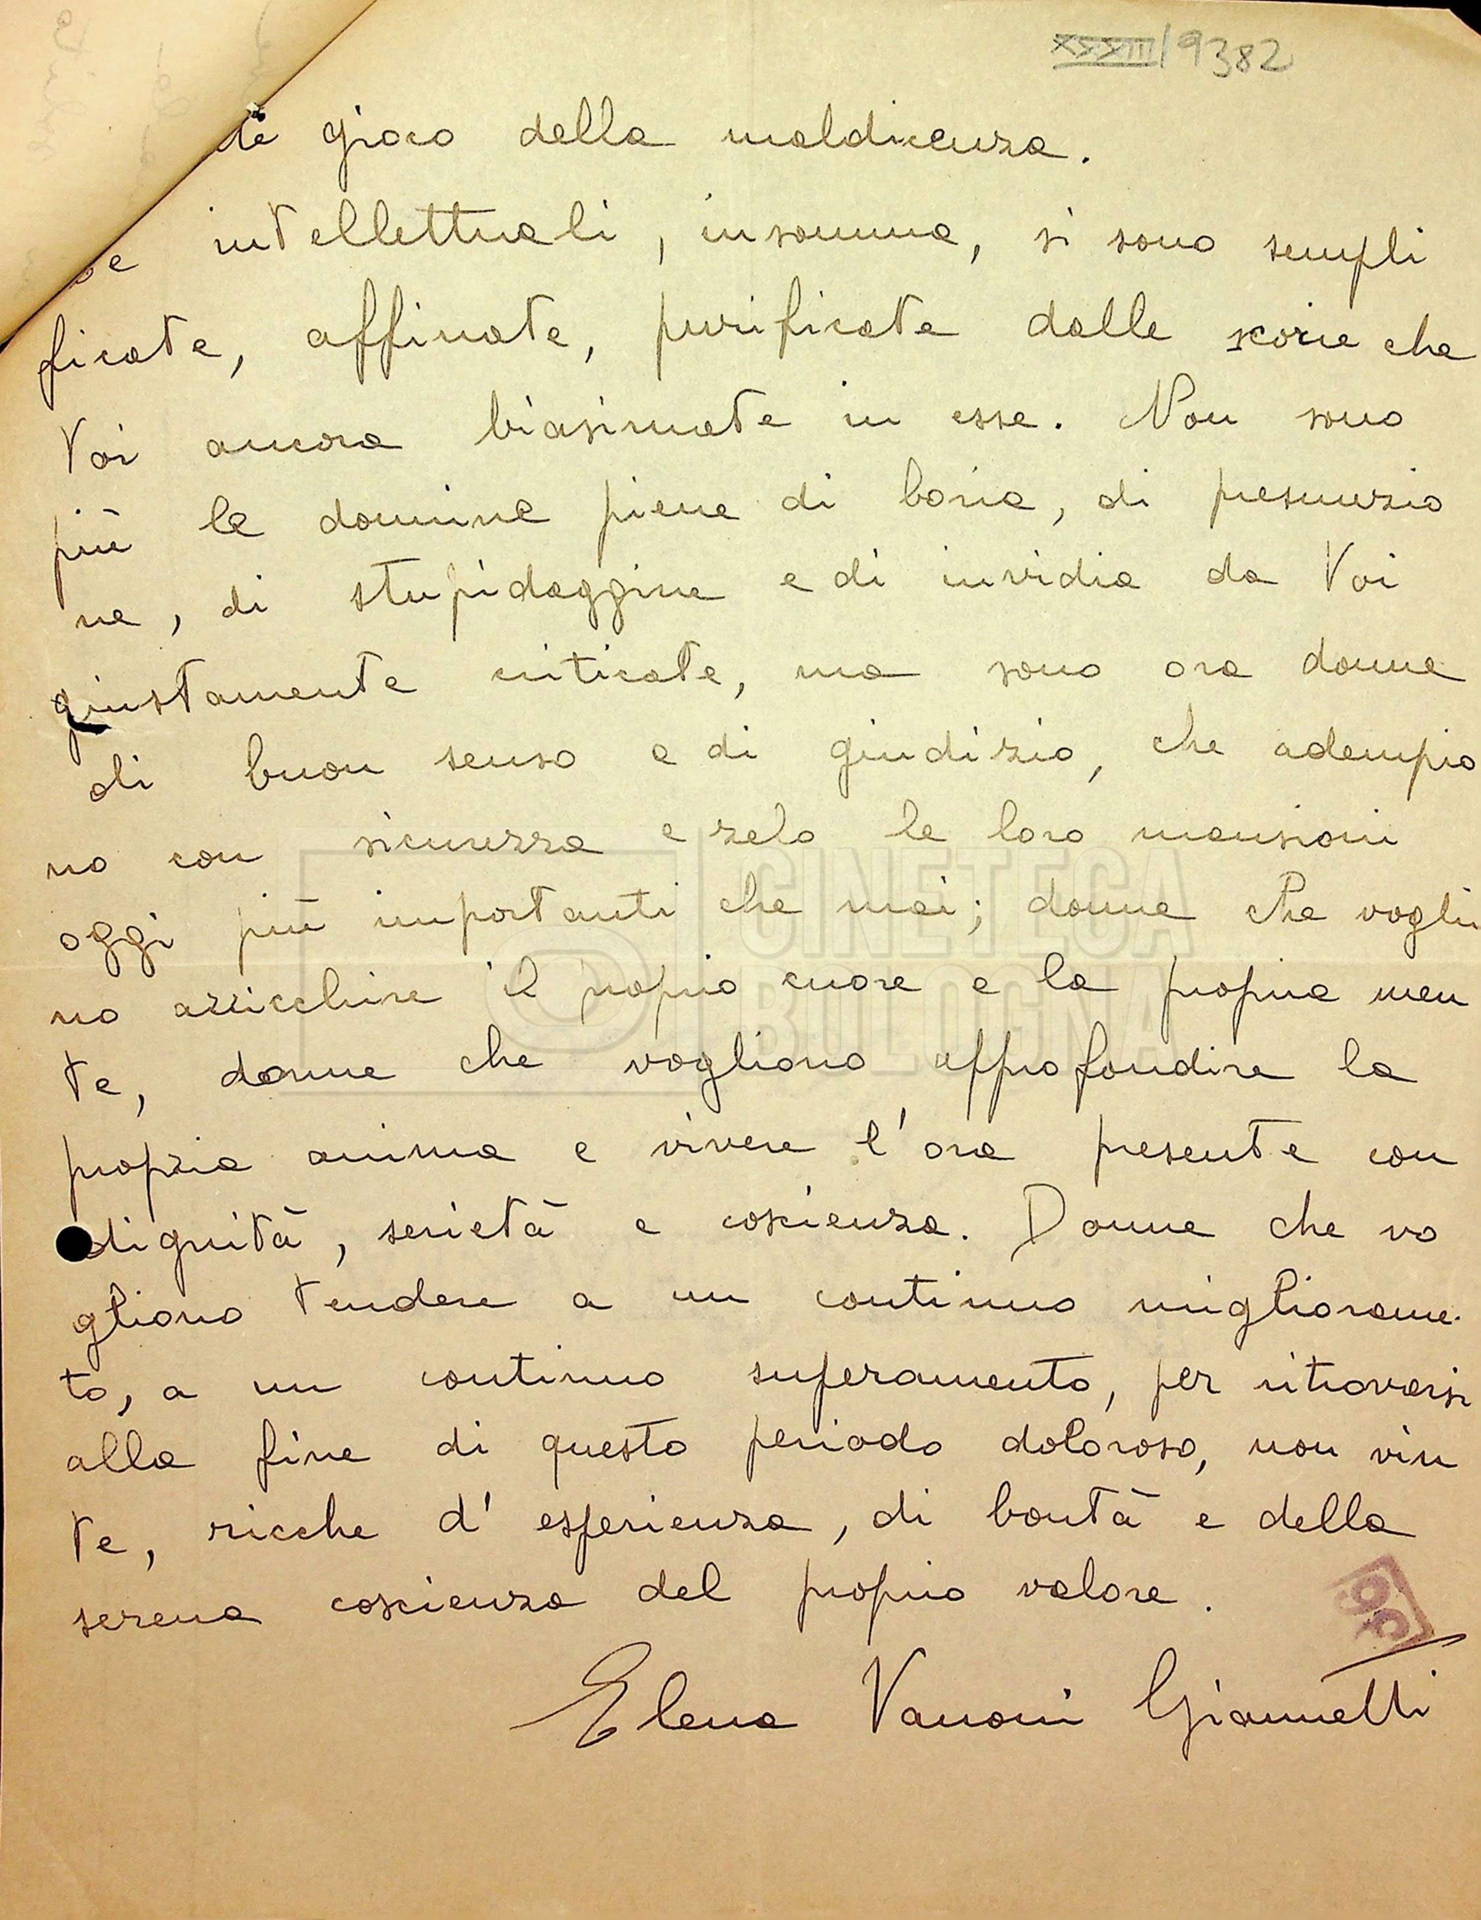 XXXIII/9382
gioco della maldicenza.
intellettuali, insomma, si sono sempli
ficate, affinate, purificate dalle scorie che
Voi ancora biasimate in esse. Non sono
più le donnine piene di boria, di presunzio
ne, di stupidaggine e di invidia da Voi
giustamente criticate, ma sono ora donne
di buon senso e di giudizio, che adempio
no con sicurezza e zelo le loro mansioni
oggi più importanti che mai; donne che voglio
no arricchire il proprio cuore e la propria men
te, donne che vogliono approfondire la
propria anima e vivere l'ora presente con
dignità, serietà e coscienza. Donne che vo
gliono tendere a un continuo miglioramen
to, a un continuo superamento, per ritrovarsi
alla fine di questo periodo doloroso, non vin
te, ricche d'esperienza, di bontà e della
serena coscienza del proprio valore.
Elena Vanoni Giannetti
CINETECA
BOLOGNA